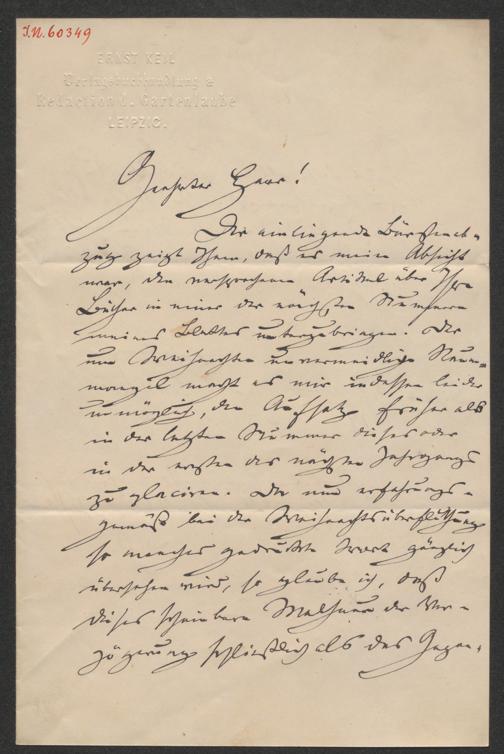 I.N. 60349
ERNST KEIL
Verlagsbuchhandlung &
Redaction d. Gartenlaube
LEIPZIG.
Geehrter Herr!
Der einliegende Bürstenab-
zug zeigt Ihnen, daß es meine Absicht
war, den versprochenen Artikel über Ihre
Bücher in einer der nächsten Nummern
meines Blattes unterzubringen. Der
um Weihnachten unvermeidliche Raum-
mangel macht es mir indessen leider
unmöglich, den Aufsatz früher als
in der letzten Nummer dieses oder
in der ersten des nächsten Jahrgangs
zu placiren. Da nun erfahrungs-
gemäß bei der Weihnachtsüberfluthung
so manches gedruckte Wort gänzlich
übersehen wird, so glaube ich, daß
dieses scheinbare Malheur der Ver-
zögerung schließlich als das Gegen-